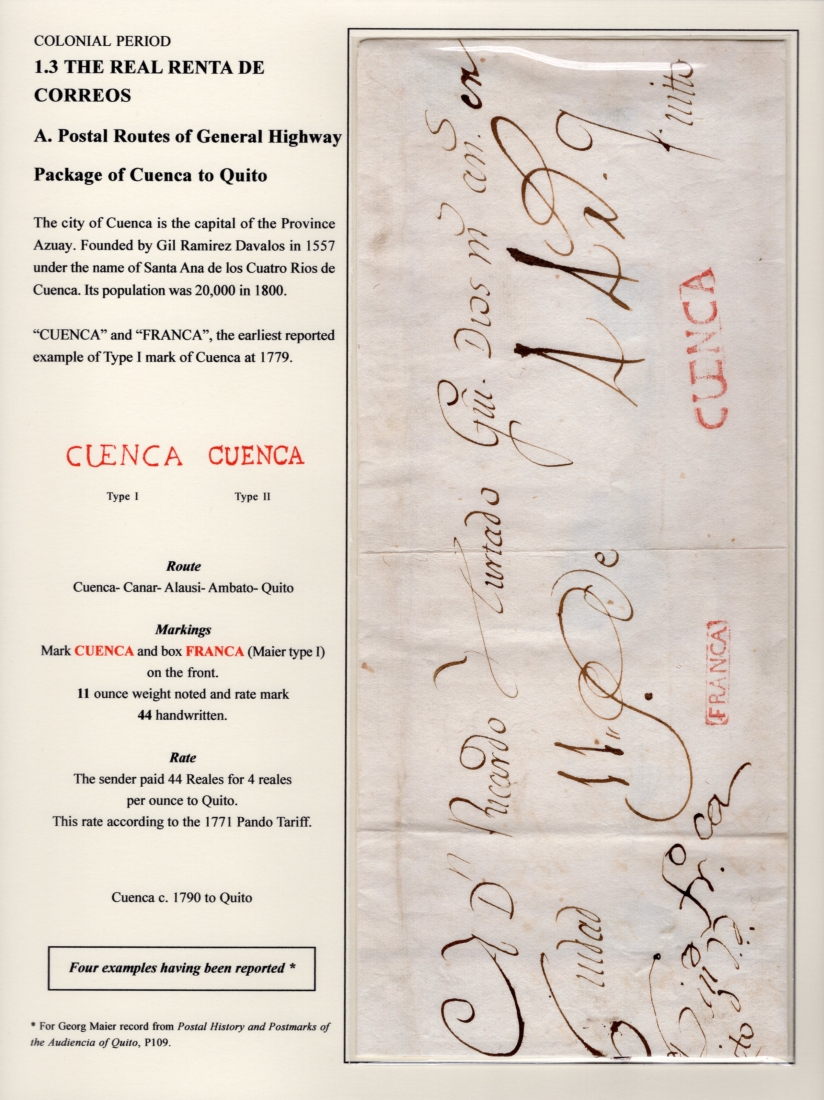 COLONIAL PERIOD
1.3 THE REAL RENTA DE
CORREOS
A. Postal Routes of General Highway
Package of Cuenca to Quito
The city of Cuenca is the capital of the Province
Azuay. Founded by Gil Ramirez Davalos in 1557
under the name of Santa Ana de los Cuatro Rios de
Cuenca. Its population was 20,000 in 1800.
“CUENCA” and “FRANCA”, the earliest reported
example of Type I mark of Cuenca at 1779.
CUENCA CUENCA
Type I Type II
Route
Cuenca- Canar- Alausi- Ambato- Quito
Markings
Mark CUENCA and box FRANCA (Maier type I)
on the front.
11 ounce weight noted and rate mark
44 handwritten.
Rate
The sender paid 44 Reales for 4 reales
per ounce to Quito.
This rate according to the 1771 Pando Tariff.
Cuenca c. 1790 to Quito
Four examples having been reported *
* For Georg Maier record from Postal History and Postmarks of
the Audiencia of Quito, P109.
A Dn Ricardo Hurtado Dios en
Quito
CUENCA
FRANCA